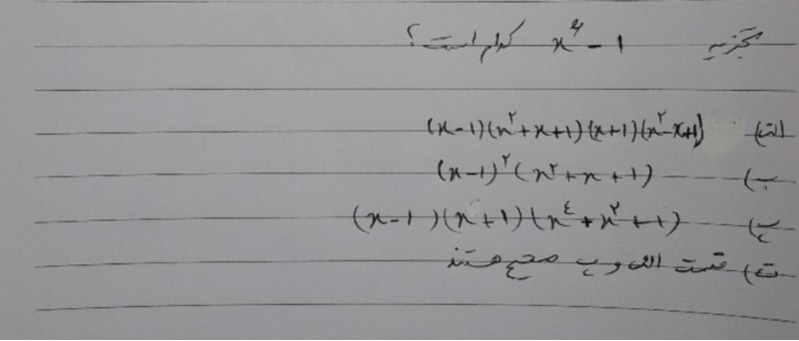 تجزیه x^۶ - 1 کدام است؟
الف) (x-1)(x^۲+x+1)(x+1)(x^۲-x+1)
ب) (x-1)^۲(x^۲+x+1)
پ) (x-1)(x+1)(x^۴+x^۲+1)
ت) قسمت الف و پ صحیح هستند